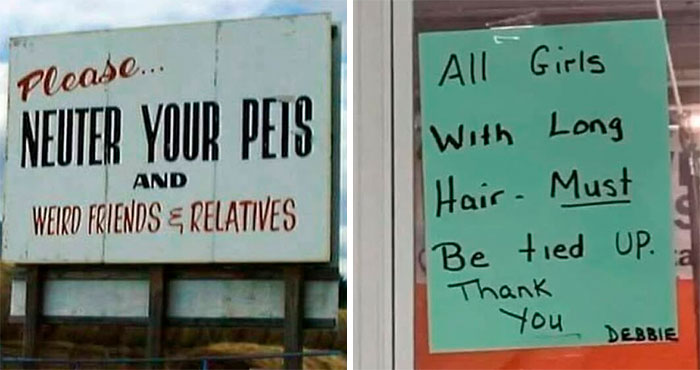 Please...
NEUTER YOUR PETS
AND
WEIRD FRIENDS & RELATIVES
All Girls
With Long
Hair - Must
Be tied UP.
Thank
You
DEBBIE